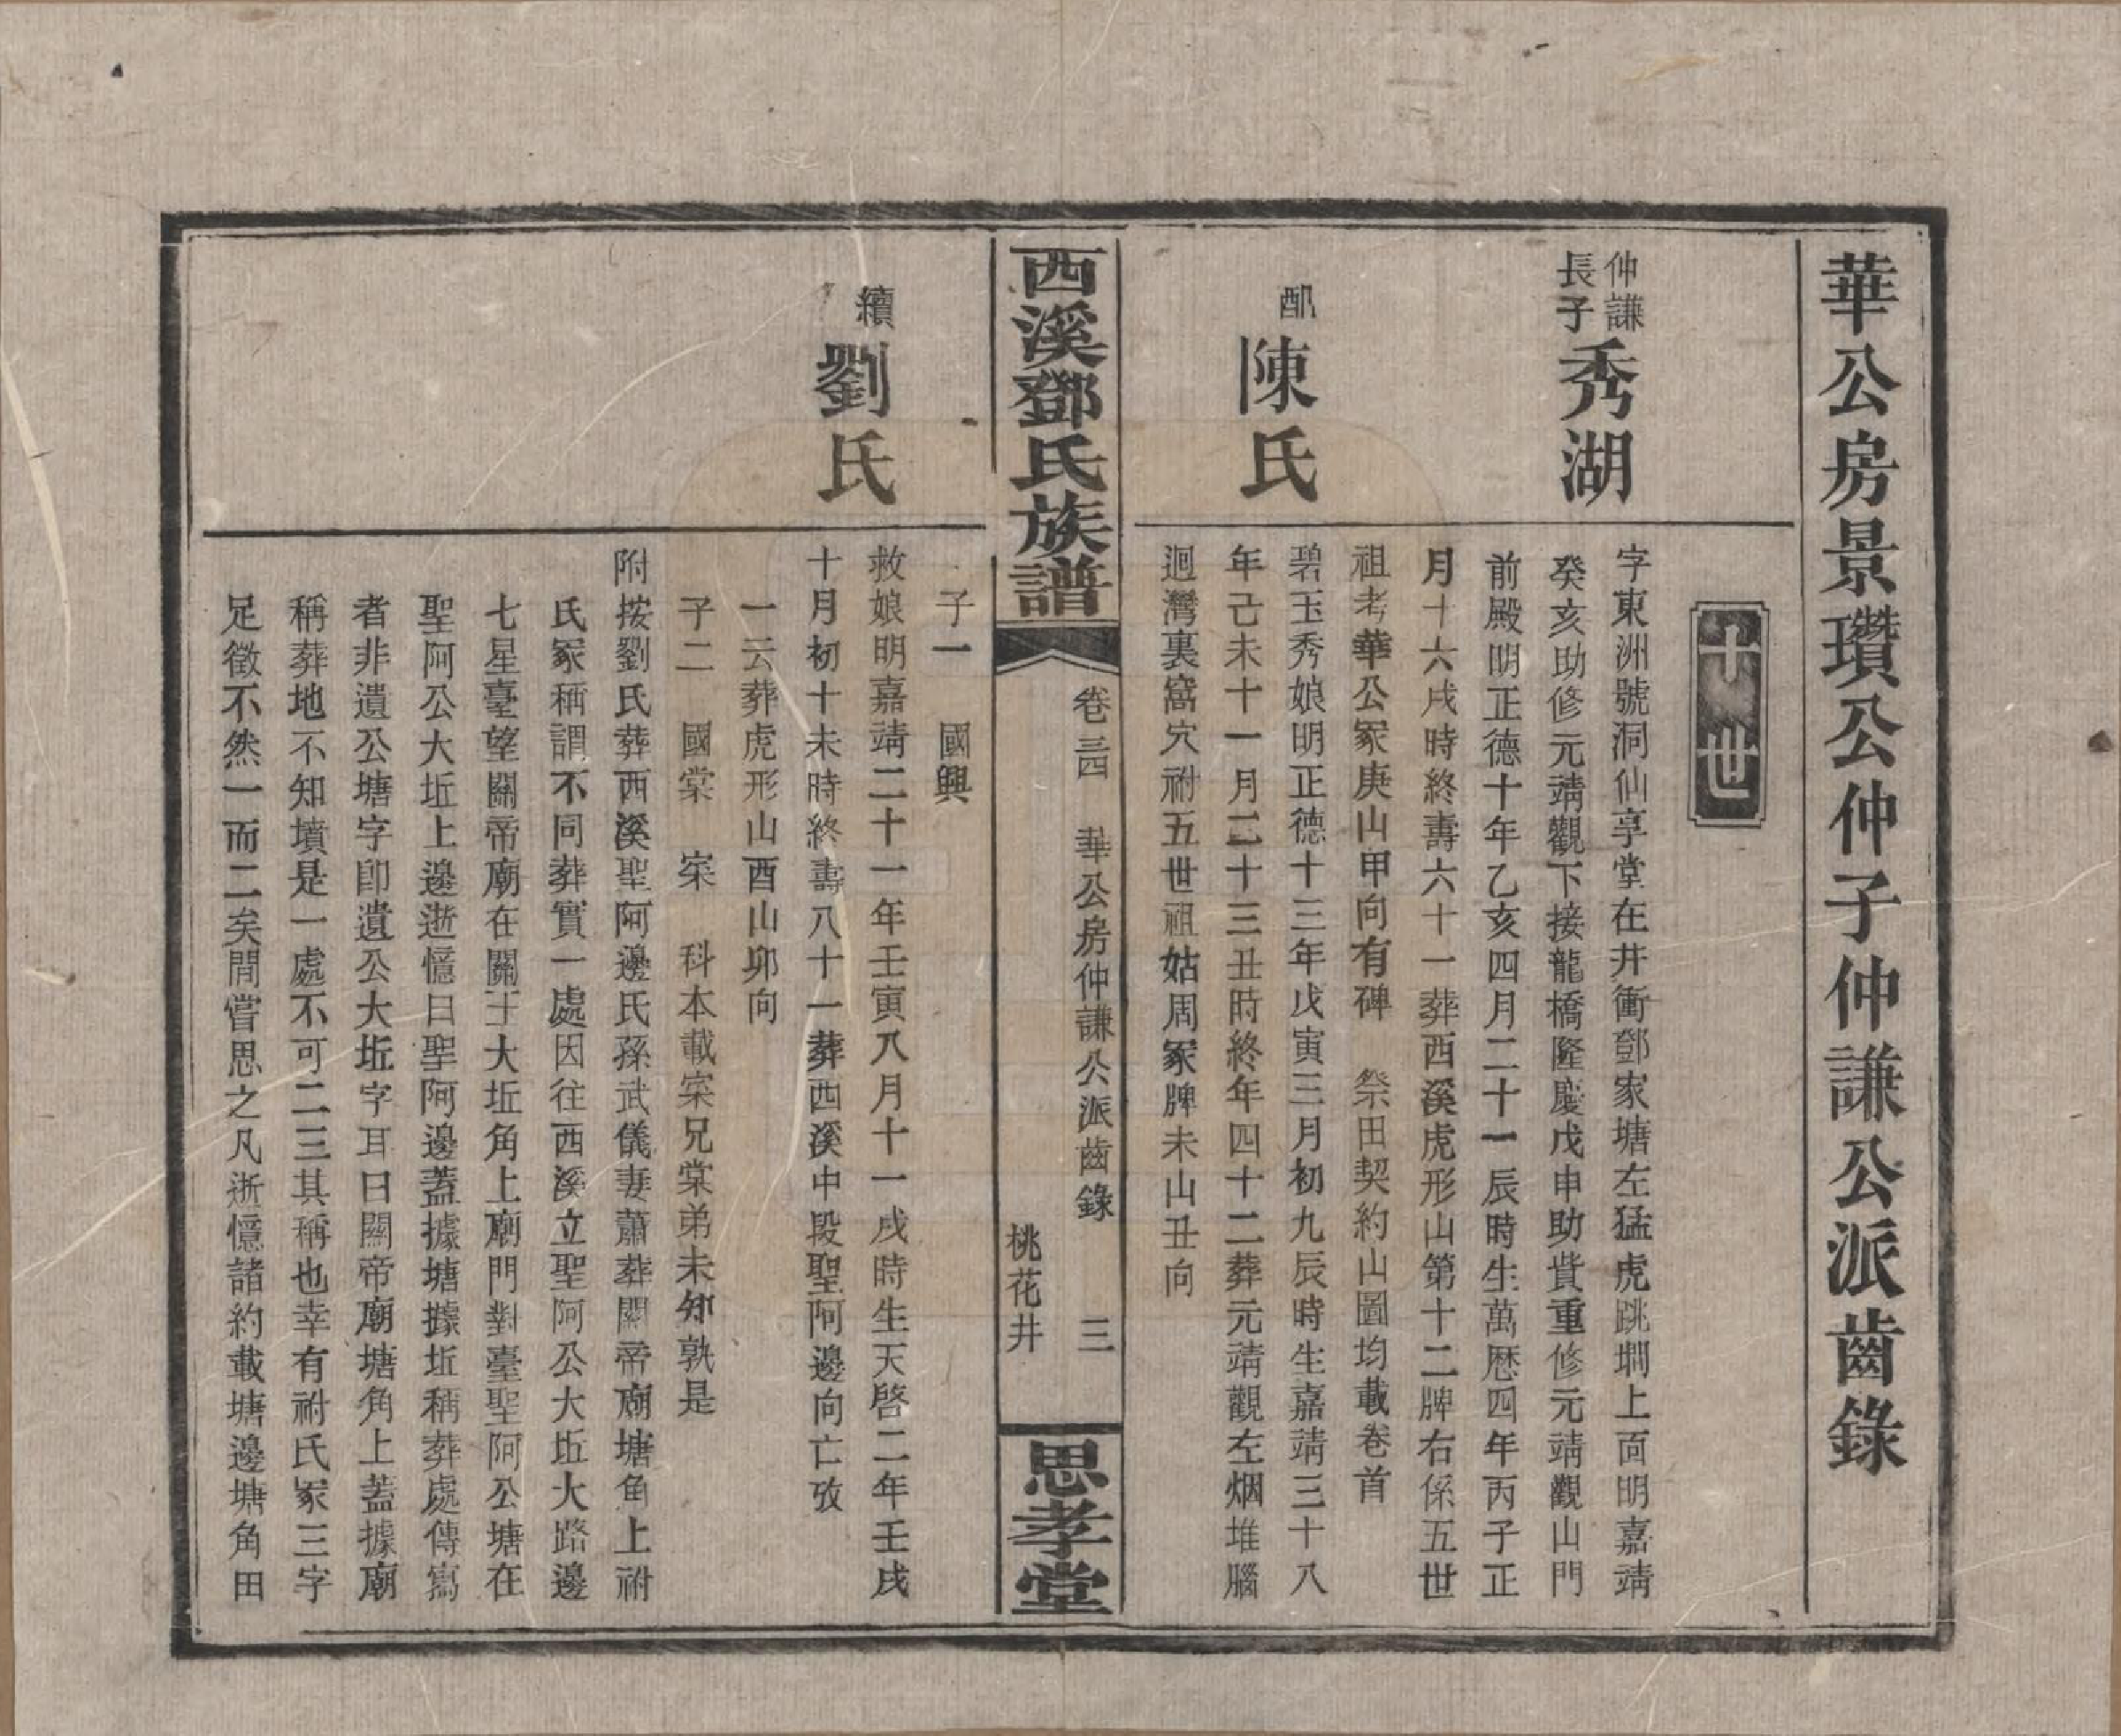 華公房景瓚公仲子仲謙公派齒錄
十世
仲謙
長子
秀湖
字東洲號洞仙享堂在井衝鄧家塘左猛虎跳墹上面明嘉靖
癸亥助修元靖觀下接龍橋隆慶戊申助貲重修元靖觀山門
前殿明正德十年乙亥四月二十一辰時生萬歷四年丙子正
月十六戌時終壽六十一葬西溪虎形山第十二牌右係五世
祖考華公冢庚山甲向有碑　祭田契約山圖均載卷首
配
陳氏
碧玉秀娘明正德十三年戊寅三月初九辰時生嘉靖三十八
年己未十一月二十三丑時終年四十二葬元靖觀左烟堆腦
迴灣裏窩穴祔五世祖姑周冢牌未山丑向
西溪鄧氏族譜
卷三四　華公房仲謙公派齒錄　三
桃花井
思孝堂
子一　國興
續
劉氏
救娘明嘉靖二十一年壬寅八月十一戌時生天啓二年壬戌
十月初十未時終壽八十一葬西溪中段聖阿邊向亡攷
一云葬虎形山酉山卯向
子二　國棠　寀　科本載寀兄棠弟未知孰是
附按劉氏葬西溪聖阿邊氏孫武儀妻蕭葬關帝廟塘角上祔
氏冢稱謂不同葬實一處因往西溪立聖阿公大坵大路邊
七星臺望關帝廟在關王大坵角上廟門對臺聖阿公塘在
聖阿公大坵上邊逝憶曰聖阿邊蓋據塘據坵稱葬處傳寫
者非遺公塘字卽遺公大坵字耳曰關帝廟塘角上蓋據廟
稱葬地不知墳是一處不可二三其稱也幸有祔氏冢三字
足徵不然一而二矣閒嘗思之凡逝憶諸約載塘邊塘角田